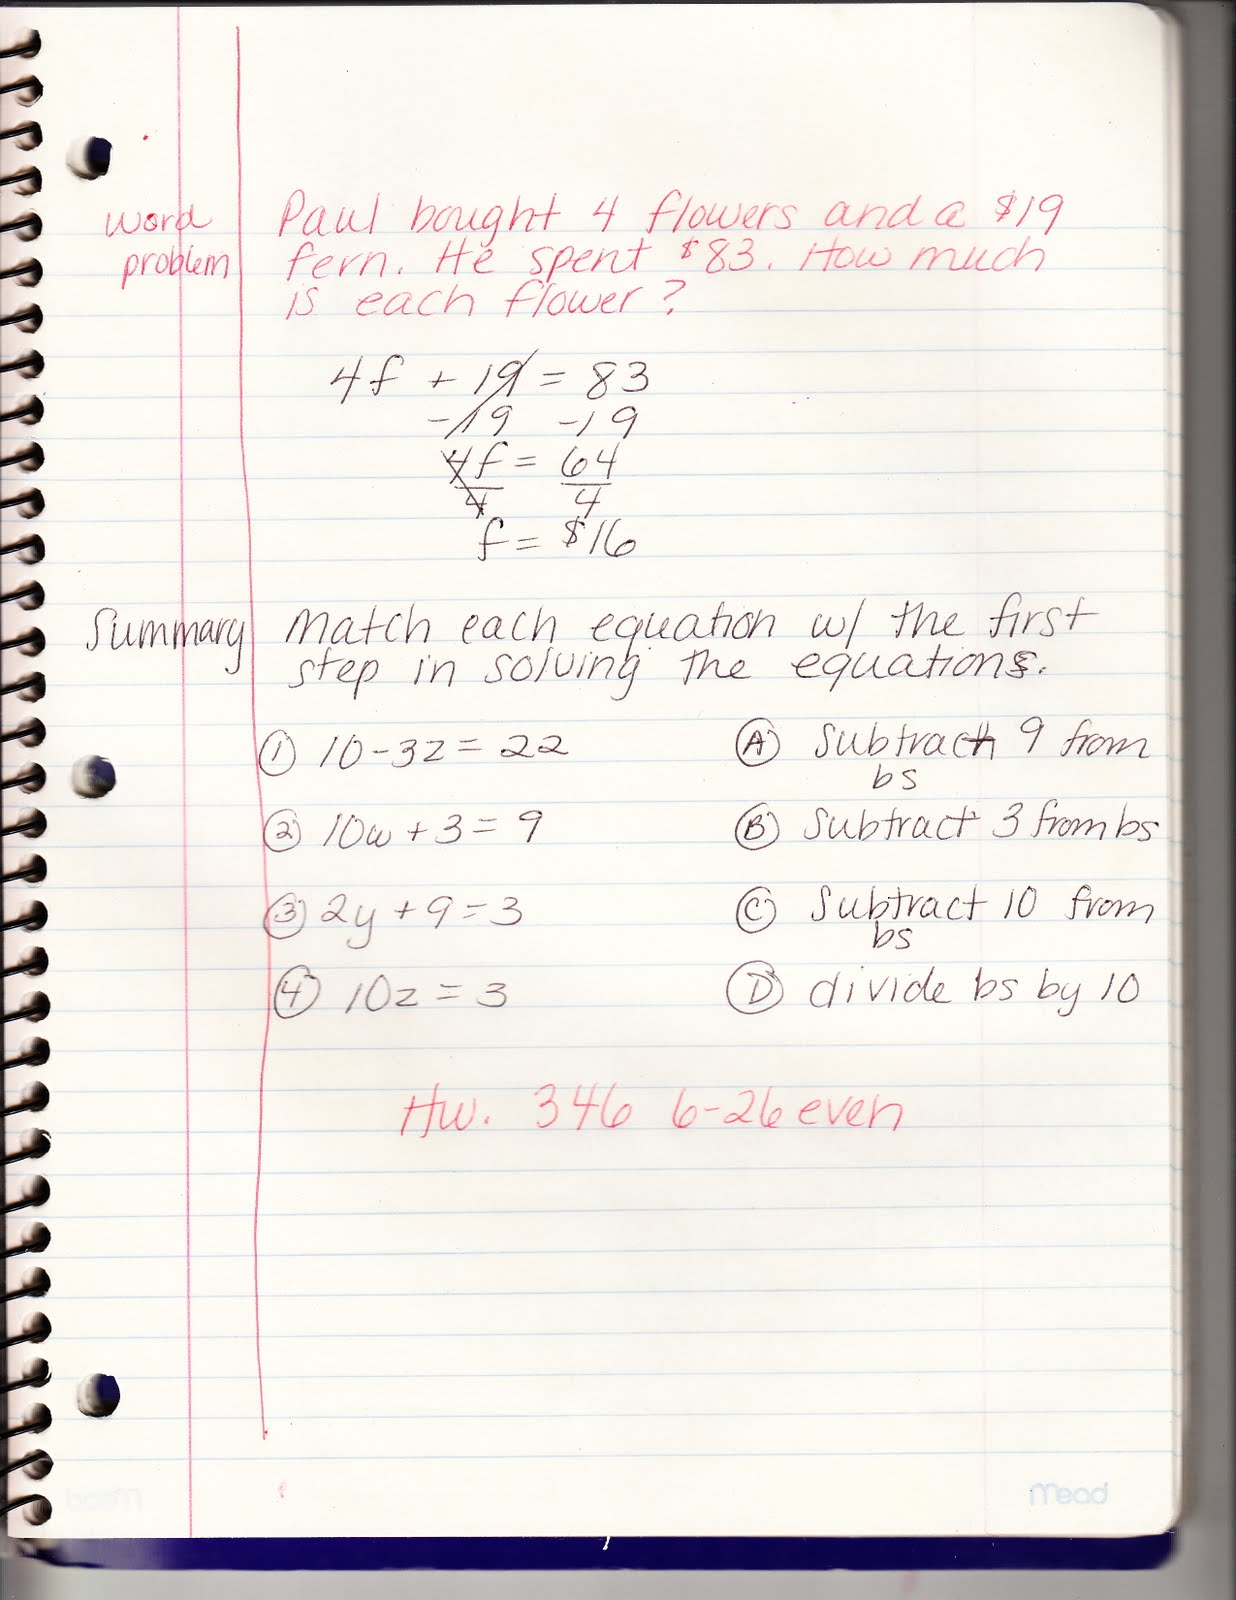 word problem
Paul bought 4 flowers and a $19
fern. He spent $83. How much
is each flower?
4f + 19 = 83
-19 -19
4f = 64
4 4
f = $16
Summary
Match each equation w/ the first
step in solving the equations.
① 10-3z = 22
Ⓐ Subtract 9 from
bs
② 10w + 3 = 9
Ⓑ Subtract 3 from bs
③ 2y + 9 = 3
Ⓒ Subtract 10 from
bs
④ 10z = 3
Ⓓ divide bs by 10
HW. 346 6-26 even
Mead